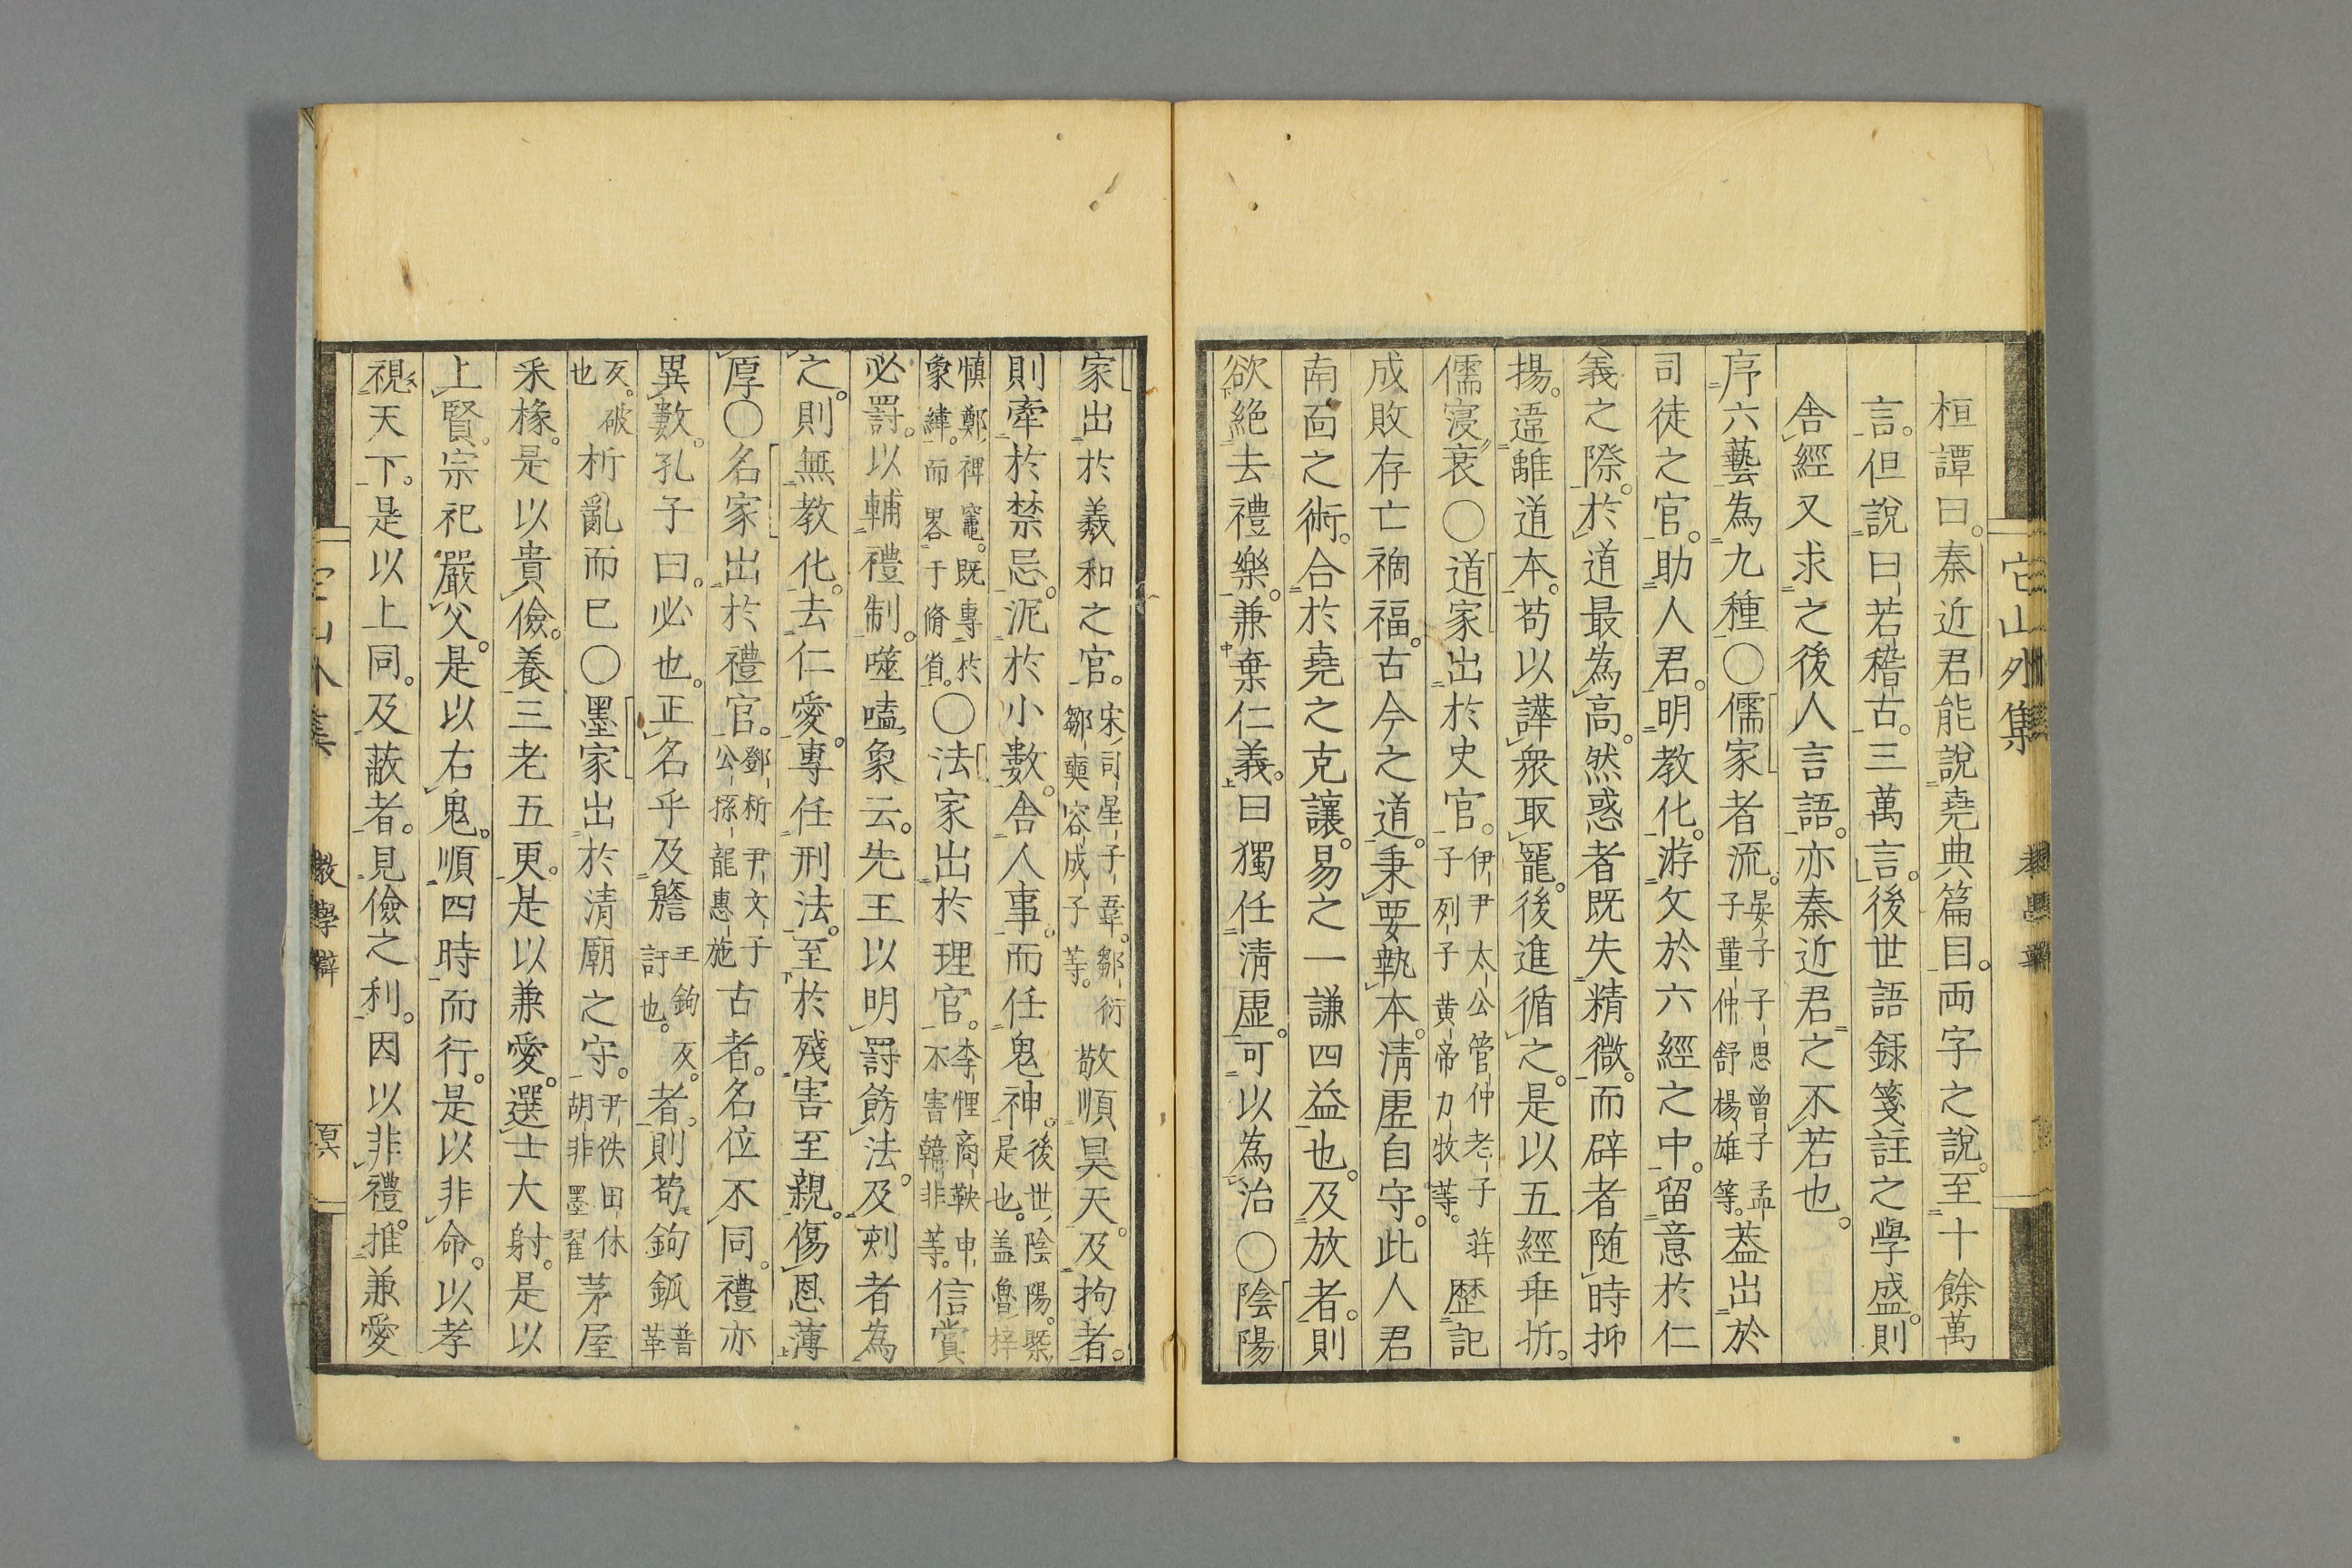 它山外集
桓譚曰。秦近君能說堯典篇目。両字之說。至十餘萬
言。但說曰若稽古。三萬言。後世語録箋註之學盛。則
舎經又求之後人言語。亦秦近君之不若也。
序六藝為九種〇儒家者流。晏子子思曾子孟子董仲舒楊雄等。葢出於
司徒之官。助人君。明教化。游攵於六經之中。留意於仁
義之際。於道最為高。然惑者既失精微。而辟者随時抑
揚。違離道本。苟以譁衆取寵。後進循之。是以五經乖折。
儒寖衰〇道家出於史官。伊尹太公管仲老子荘子列子黄帝力牧等。歴記
成敗存亡禍福。古今之道。秉要執本。清虛自守。此人君
南面之術。合於堯之克讓。易之一謙四益也。及放者。則
欲絶去禮樂。兼棄仁義。曰獨任清虛。可以為治〇陰陽
家出於羲和之官。宋司星子韋。鄒衍鄒奭容成子等。敬順昊天。及拘者。
則牽於禁忌。泥於小數。舎人事。而任鬼神。後世陰陽。槩是也。盖魯梓
慎鄭裨竈。既専於象緯。而畧于脩省。〇法家出於理官。李悝商鞅申不害韓非等。信賞
必罸。以輔禮制。噬嗑象云。先王以明罸飭法。及刻者為
之。則無教化。去仁愛。専任刑法。至於殘害至親。傷恩薄
厚〇名家出於禮官。鄧析尹文子公孫龍惠施古者。名位不同。禮亦
異數。孔子曰。必也。正名乎及警王鉤反。訐也。者。則苟鉤鈲普革
反。破也析亂而已〇墨家出於清廟之守。尹佚田俅胡非墨翟茅屋
釆椽。是以貴儉。養三老五更。是以兼愛。選士大射。是以
上賢。宗祀嚴父。是以右鬼。順四時而行。是以非命。以孝
視天下。是以上同。及蔽者。見儉之利。因以非禮。推兼愛
教學辯